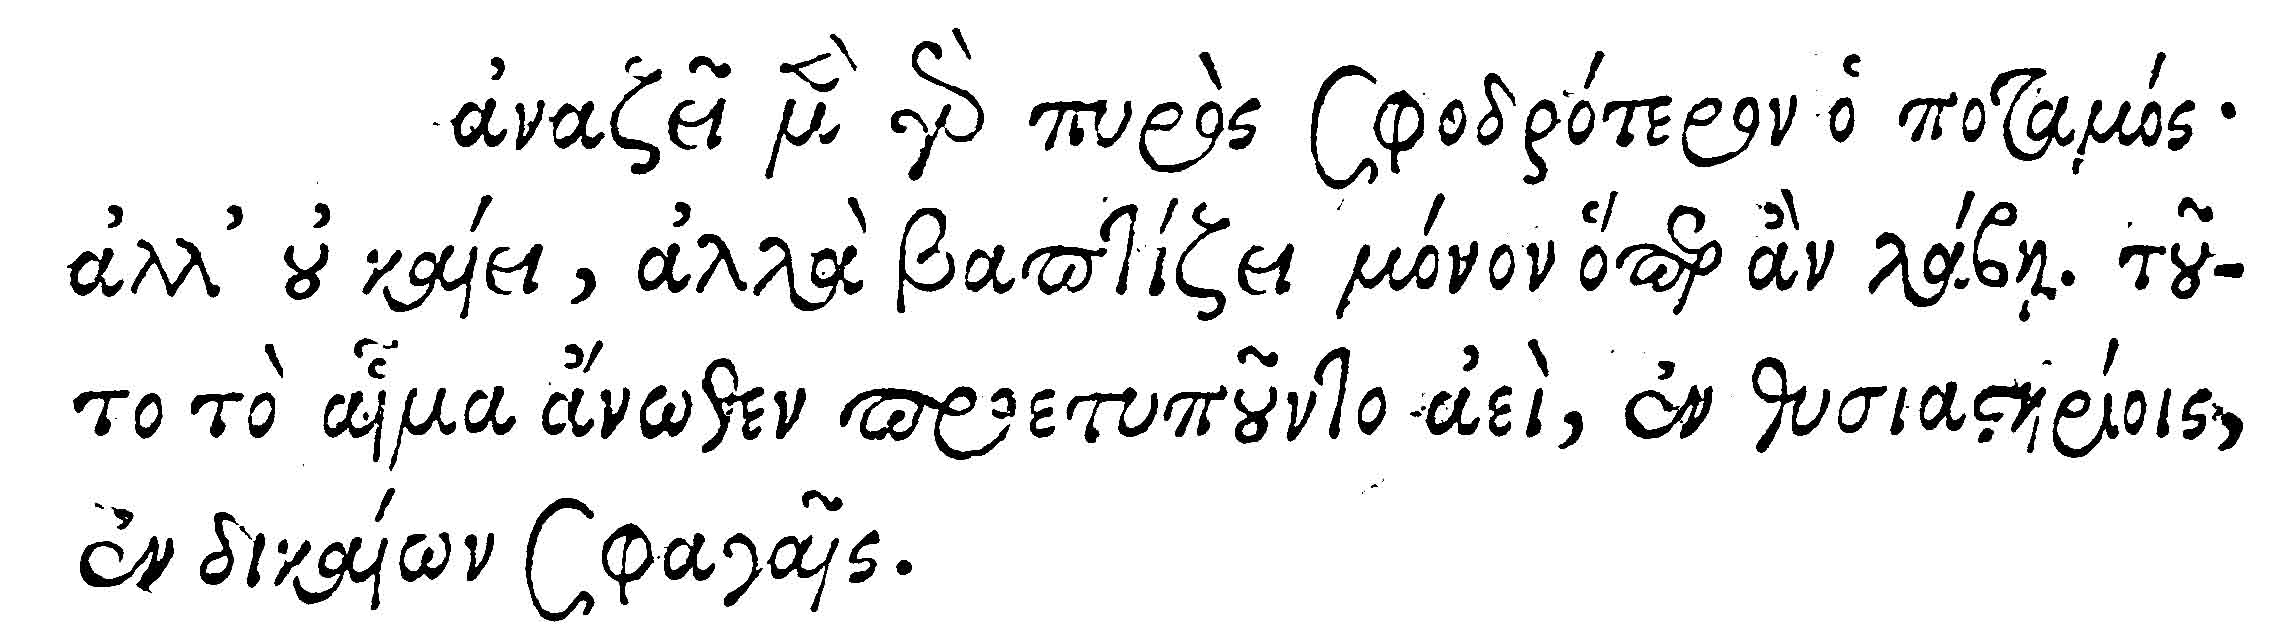 ἀναζεῖ μὲν γὰρ πυρὸς σφοδρότερον ὁ ποταμός·
ἀλλ' οὐ καίει, ἀλλὰ βαπτίζει μόνον ὅπερ ἂν λάβῃ. τοῦ-
το τὸ αἷμα ἄνωθεν προετυποῦντο ἀεὶ, ἐν θυσιαστηρίοις,
ἐν δικαίων σφαγαῖς.